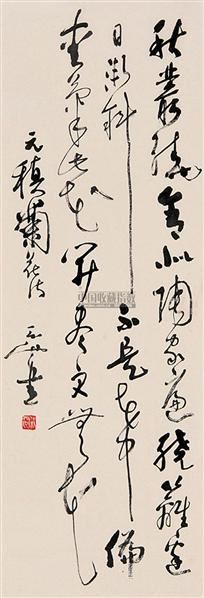 秋叢繞舍似陶家遍繞籬邊
日漸斜不是花中偏
愛菊此花開盡更無花
元稹菊花詩
中国收藏指数